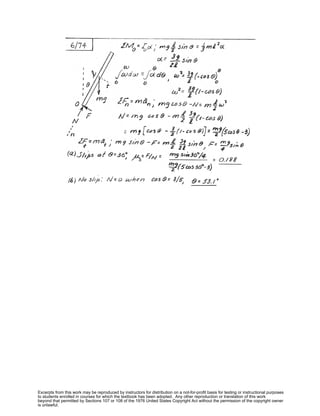 6/74
ΣM₀ = I₀α ; mg ℓ/2 sin θ = 1/3 mℓ²α
α = 3g/2ℓ sin θ
∫₀^ω ωdω = ∫₀^θ αdθ, ω² = 2 3g/2ℓ (-cos θ)₀^θ
ω² = 3g/ℓ (1-cos θ)
ΣFn = man ; mg cos θ - N = m ℓ/2 ω²
N = mg cos θ - m ℓ/2 3g/ℓ (1-cos θ)
: mg [cos θ - 3/2 (1-cos θ)] = mg/2 (5 cos θ - 3)
ΣFt = mat ; mg sin θ - F = m ℓ/2 3g/2ℓ sin θ, F = mg/4 sin θ
(a) Slips at θ = 30° μs = F/N = mg sin 30°/4 / mg/2 (5 cos 30° - 3) = 0.188
(b) No slip: N = 0 when cos θ = 3/5, θ = 53.1°
θ ω t mg O F N n
Excerpts from this work may be reproduced by instructors for distribution on a not-for-profit basis for testing or instructional purposes
to students enrolled in courses for which the textbook has been adopted. Any other reproduction or translation of this work
beyond that permitted by Sections 107 or 108 of the 1976 United States Copyright Act without the permission of the copyright owner
is unlawful.